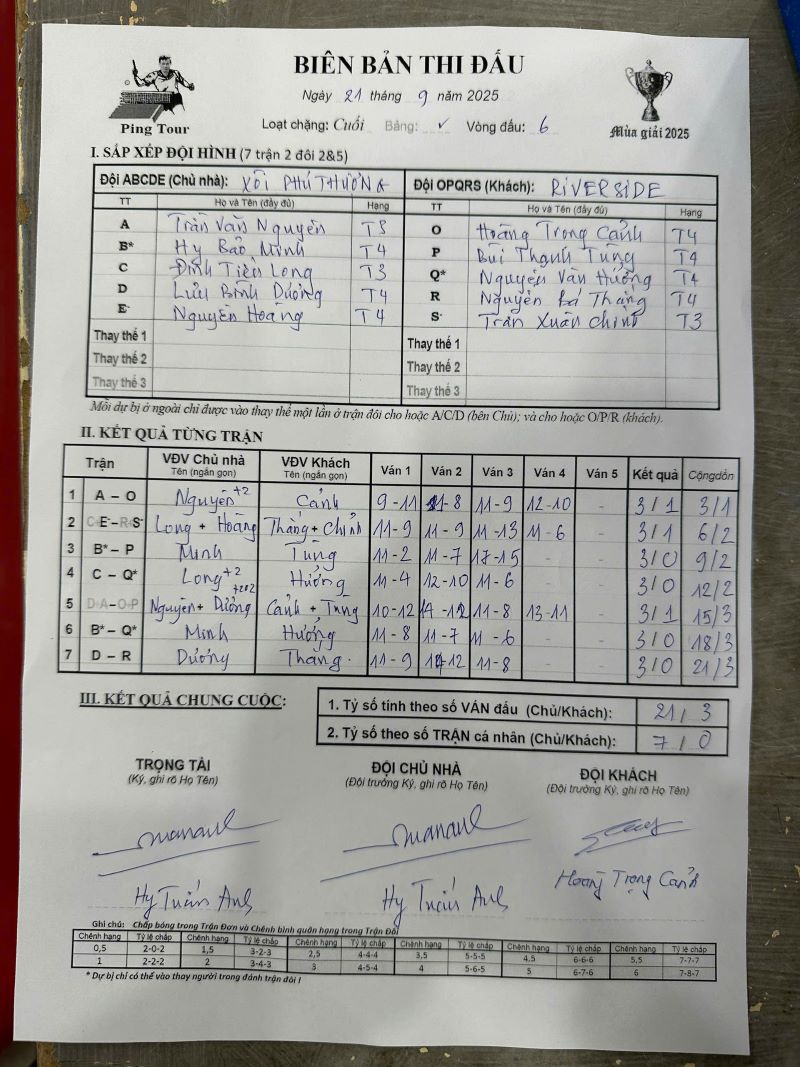 BIÊN BẢN THI ĐẤU
Ngày 21 tháng 9 năm 2025
Ping Tour
Loại chặng: Cuối Bảng: ✓ Vòng đấu: 6
Mùa giải 2025
I. SẮP XẾP ĐỘI HÌNH (7 trận 2 đôi 2&5)
Đội ABCDE (Chủ nhà): XÔI PHÚ THƯỢNG Đội OPQRS (Khách): RIVERSIDE
TT Họ và Tên (đầy đủ) Hạng TT Họ và Tên (đầy đủ) Hạng
A Trần Văn Nguyên T3 O Hoàng Trọng Cảnh T4
B* Hy Bảo Minh T4 P Bùi Thanh Tùng T4
C Đinh Tiến Long T3 Q* Nguyễn Văn Hưởng T4
D Lưu Bình Dương T4 R Nguyễn Bá Thắng T4
E- Nguyễn Hoàng T4 S- Trần Xuân Chỉnh T3
Thay thế 1 Thay thế 1
Thay thế 2 Thay thế 2
Thay thế 3 Thay thế 3
Mỗi dự bị ở ngoài chỉ được vào thay thế một lần ở trận đôi cho hoặc A/C/D (bên Chủ); và cho hoặc O/P/R (khách).
II. KẾT QUẢ TỪNG TRẬN
Trận VĐV Chủ nhà Tên (ngắn gọn) VĐV Khách Tên (ngắn gọn) Ván 1 Ván 2 Ván 3 Ván 4 Ván 5 Kết quả Cộngdồn
1 A – O Nguyên +2 Cảnh 9-11 11-8 11-9 12-10 - 3/1 3/1
2 C E-–R S- Long + Hoàng Thắng + Chỉnh 11-9 11-9 11-13 11-6 - 3/1 6/2
3 B* – P Minh Tùng 11-2 11-7 17-15 - - 3/0 9/2
4 C – Q* Long +2 Hưởng 11-4 12-10 11-6 - - 3/0 12/2
5 D A–O P Nguyên + Dương +202 Cảnh + Tùng 10-12 14-12 11-8 13-11 - 3/1 15/3
6 B* – Q* Minh Hưởng 11-8 11-7 11-6 - - 3/0 18/3
7 D – R Dương Thắng 11-9 14-12 11-8 - - 3/0 21/3
III. KẾT QUẢ CHUNG CUỘC:
1. Tỷ số tính theo số VÁN đấu (Chủ/Khách): 21/3
2. Tỷ số theo số TRẬN cá nhân (Chủ/Khách): 7/0
TRỌNG TÀI
(Ký, ghi rõ Họ Tên)
ĐỘI CHỦ NHÀ
(Đội trưởng Ký, ghi rõ Họ Tên)
ĐỘI KHÁCH
(Đội trưởng Ký, ghi rõ Họ Tên)
Hy Tuấn Anh Hy Tuấn Anh Hoàng Trọng Cảnh
Ghi chú: Chấp bóng trong Trận Đơn và Chênh bình quân hạng trong Trận Đôi
Chênh hạng Tỷ lệ chấp Chênh hạng Tỷ lệ chấp Chênh hạng Tỷ lệ chấp Chênh hạng Tỷ lệ chấp Chênh hạng Tỷ lệ chấp Chênh hạng Tỷ lệ chấp
0,5 2-0-2 1,5 3-2-3 2,5 4-4-4 3,5 5-5-5 4,5 6-6-6 5,5 7-7-7
1 2-2-2 2 3-4-3 3 4-5-4 4 5-6-5 5 6-7-6 6 7-8-7
* Dự bị chỉ có thể vào thay người trong đánh trận đôi !